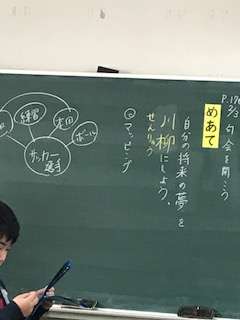 2/3 句会を開こう
めあて
自分の将来の夢を
川柳にしよう。
せんりゅう
マッピング
ボール
本田
練習
サッカー
選手